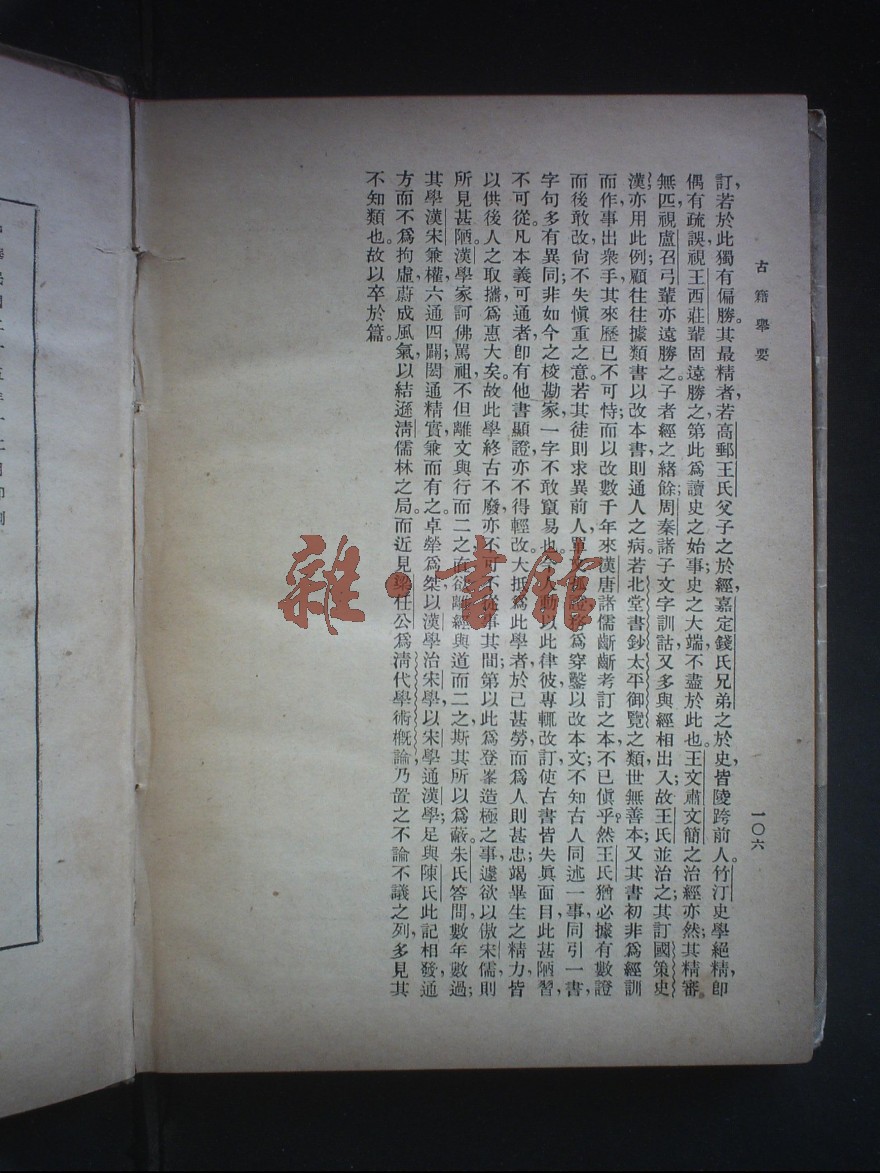 古籍舉要
一〇六
訂，若於此獨有偏勝。其最精者，若高郵王氏父子之於經，嘉定錢氏兄弟之於史，皆陵跨前人。竹汀史學絕精，卽
偶有疏誤，視王西莊輩固遠勝之。第此爲讀史之始事，史之大端，不盡於此也。王文肅文簡之治經亦然，其精審
無匹，視盧召弓輩亦遠勝之。子者經之緒餘；周秦諸子文字訓詁，又多與經相出入；故王氏並治之。其訂國策史
漢，亦用此例；顧往往據類書以改本書，則通人之病。若北堂書鈔太平御覽之類，世無善本；又其書初非爲經訓
而作，事出衆手，其來歷已不可恃；而以改數千年來漢唐諸儒齗齗考訂之本，不已傎乎？然王氏猶必據有數證
而後敢改，尙不失愼重之意。若其徒則求異前人，單文孤證，務爲穿鑿以改本文；不知古人同述一事，同引一書，
字句多有異同；非如今之校勘家，一字不敢竄易也。今人動以此律彼，專輒改訂，使古書皆失眞面目，此甚陋習，
不可從。凡本義可通者，卽有他書顯證，亦不得輕改。大抵爲此學者，於己甚勞，而爲人則甚忠；竭畢生之精力，皆
以供後人之取攜，爲惠大矣。故此學終古不廢，亦不可不從事其間；第以此爲登峯造極之事，遽欲以傲宋儒，則
所見甚陋。漢學家訶佛罵祖，不但離文與行而二之，直欲離經與道而二之，斯其所以爲蔽。朱氏答問，數年數過；
其學漢宋兼權，六通四闢；閎通精實，兼而有之。卓犖爲桀，以漢學治宋學，以宋學通漢學；足與陳氏此記相發，通
方而不爲拘虛，蔚成風氣，以結遜淸儒林之局。而近見梁任公爲淸代學術槪論，乃置之不論不議之列，多見其
不知類也。故以卒於篇。
雜·書館